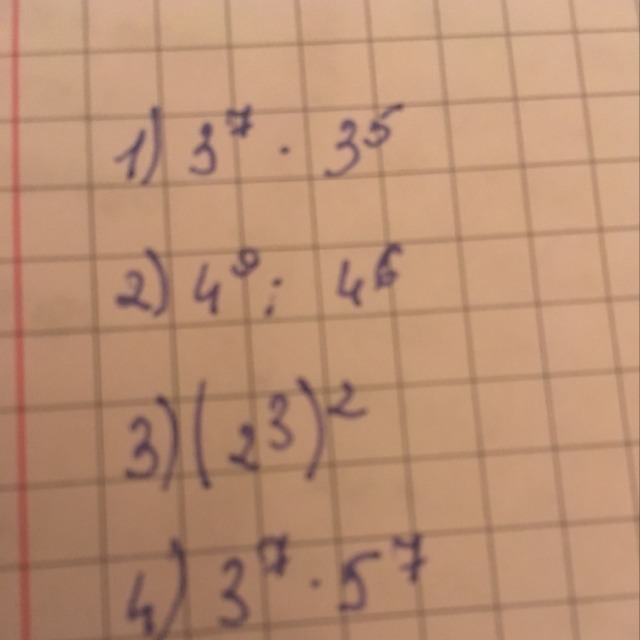 1) 3⁷ · 3⁵
2) 4⁹ : 4⁶
3) (2³)²
4) 3⁷ · 5⁷